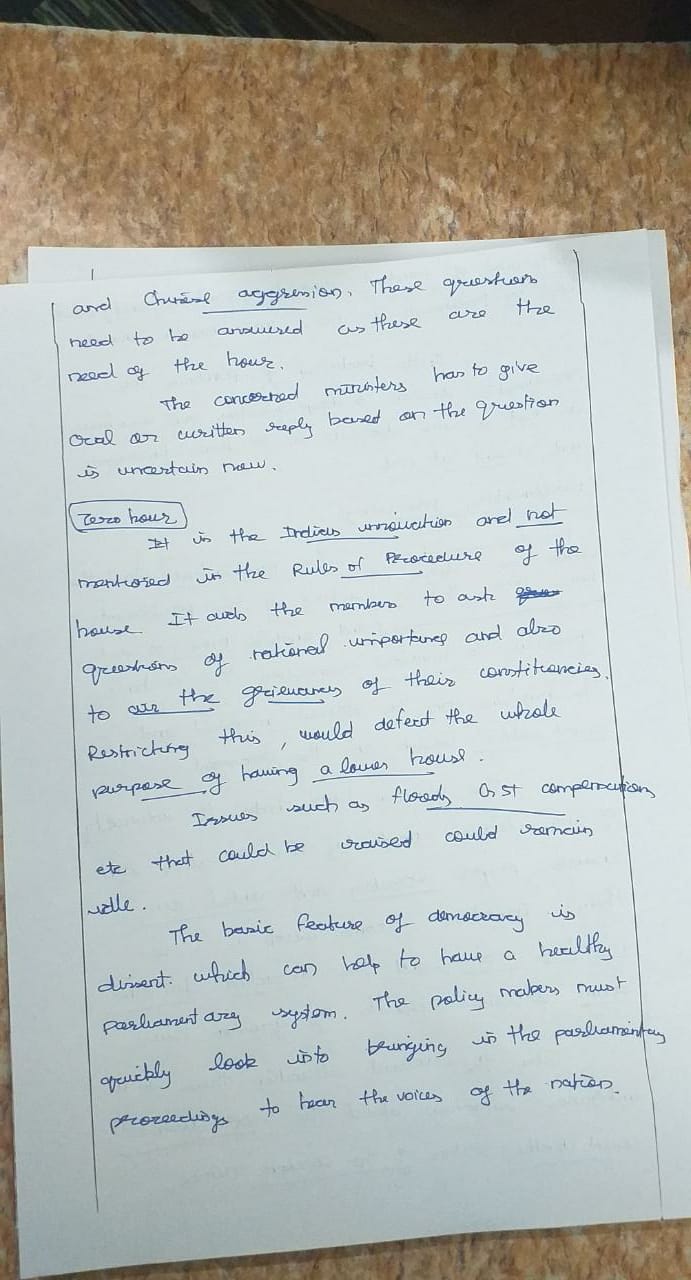 and Chinese aggression. These questions
need to be answered as these are the
need of the hour.
The concerned ministers has to give
Oral or written reply based on the question
is uncertain now.
Zero hour
It is the Indian innovation and not
mentioned in the Rules of Procedure of the
house. It aids the members to ask
questions of national importance and also
to air the grievances of their constituencies.
Restricting this, would defeat the whole
purpose of having a lower house.
Issues such as floods, GST compensation,
etc that could be raised could remain
idle.
The basic feature of democracy is
dissent. which can help to have a healthy
parliamentary system. The policy makers must
quickly look into bringing in the parliamentary
proceedings to hear the voices of the nation.